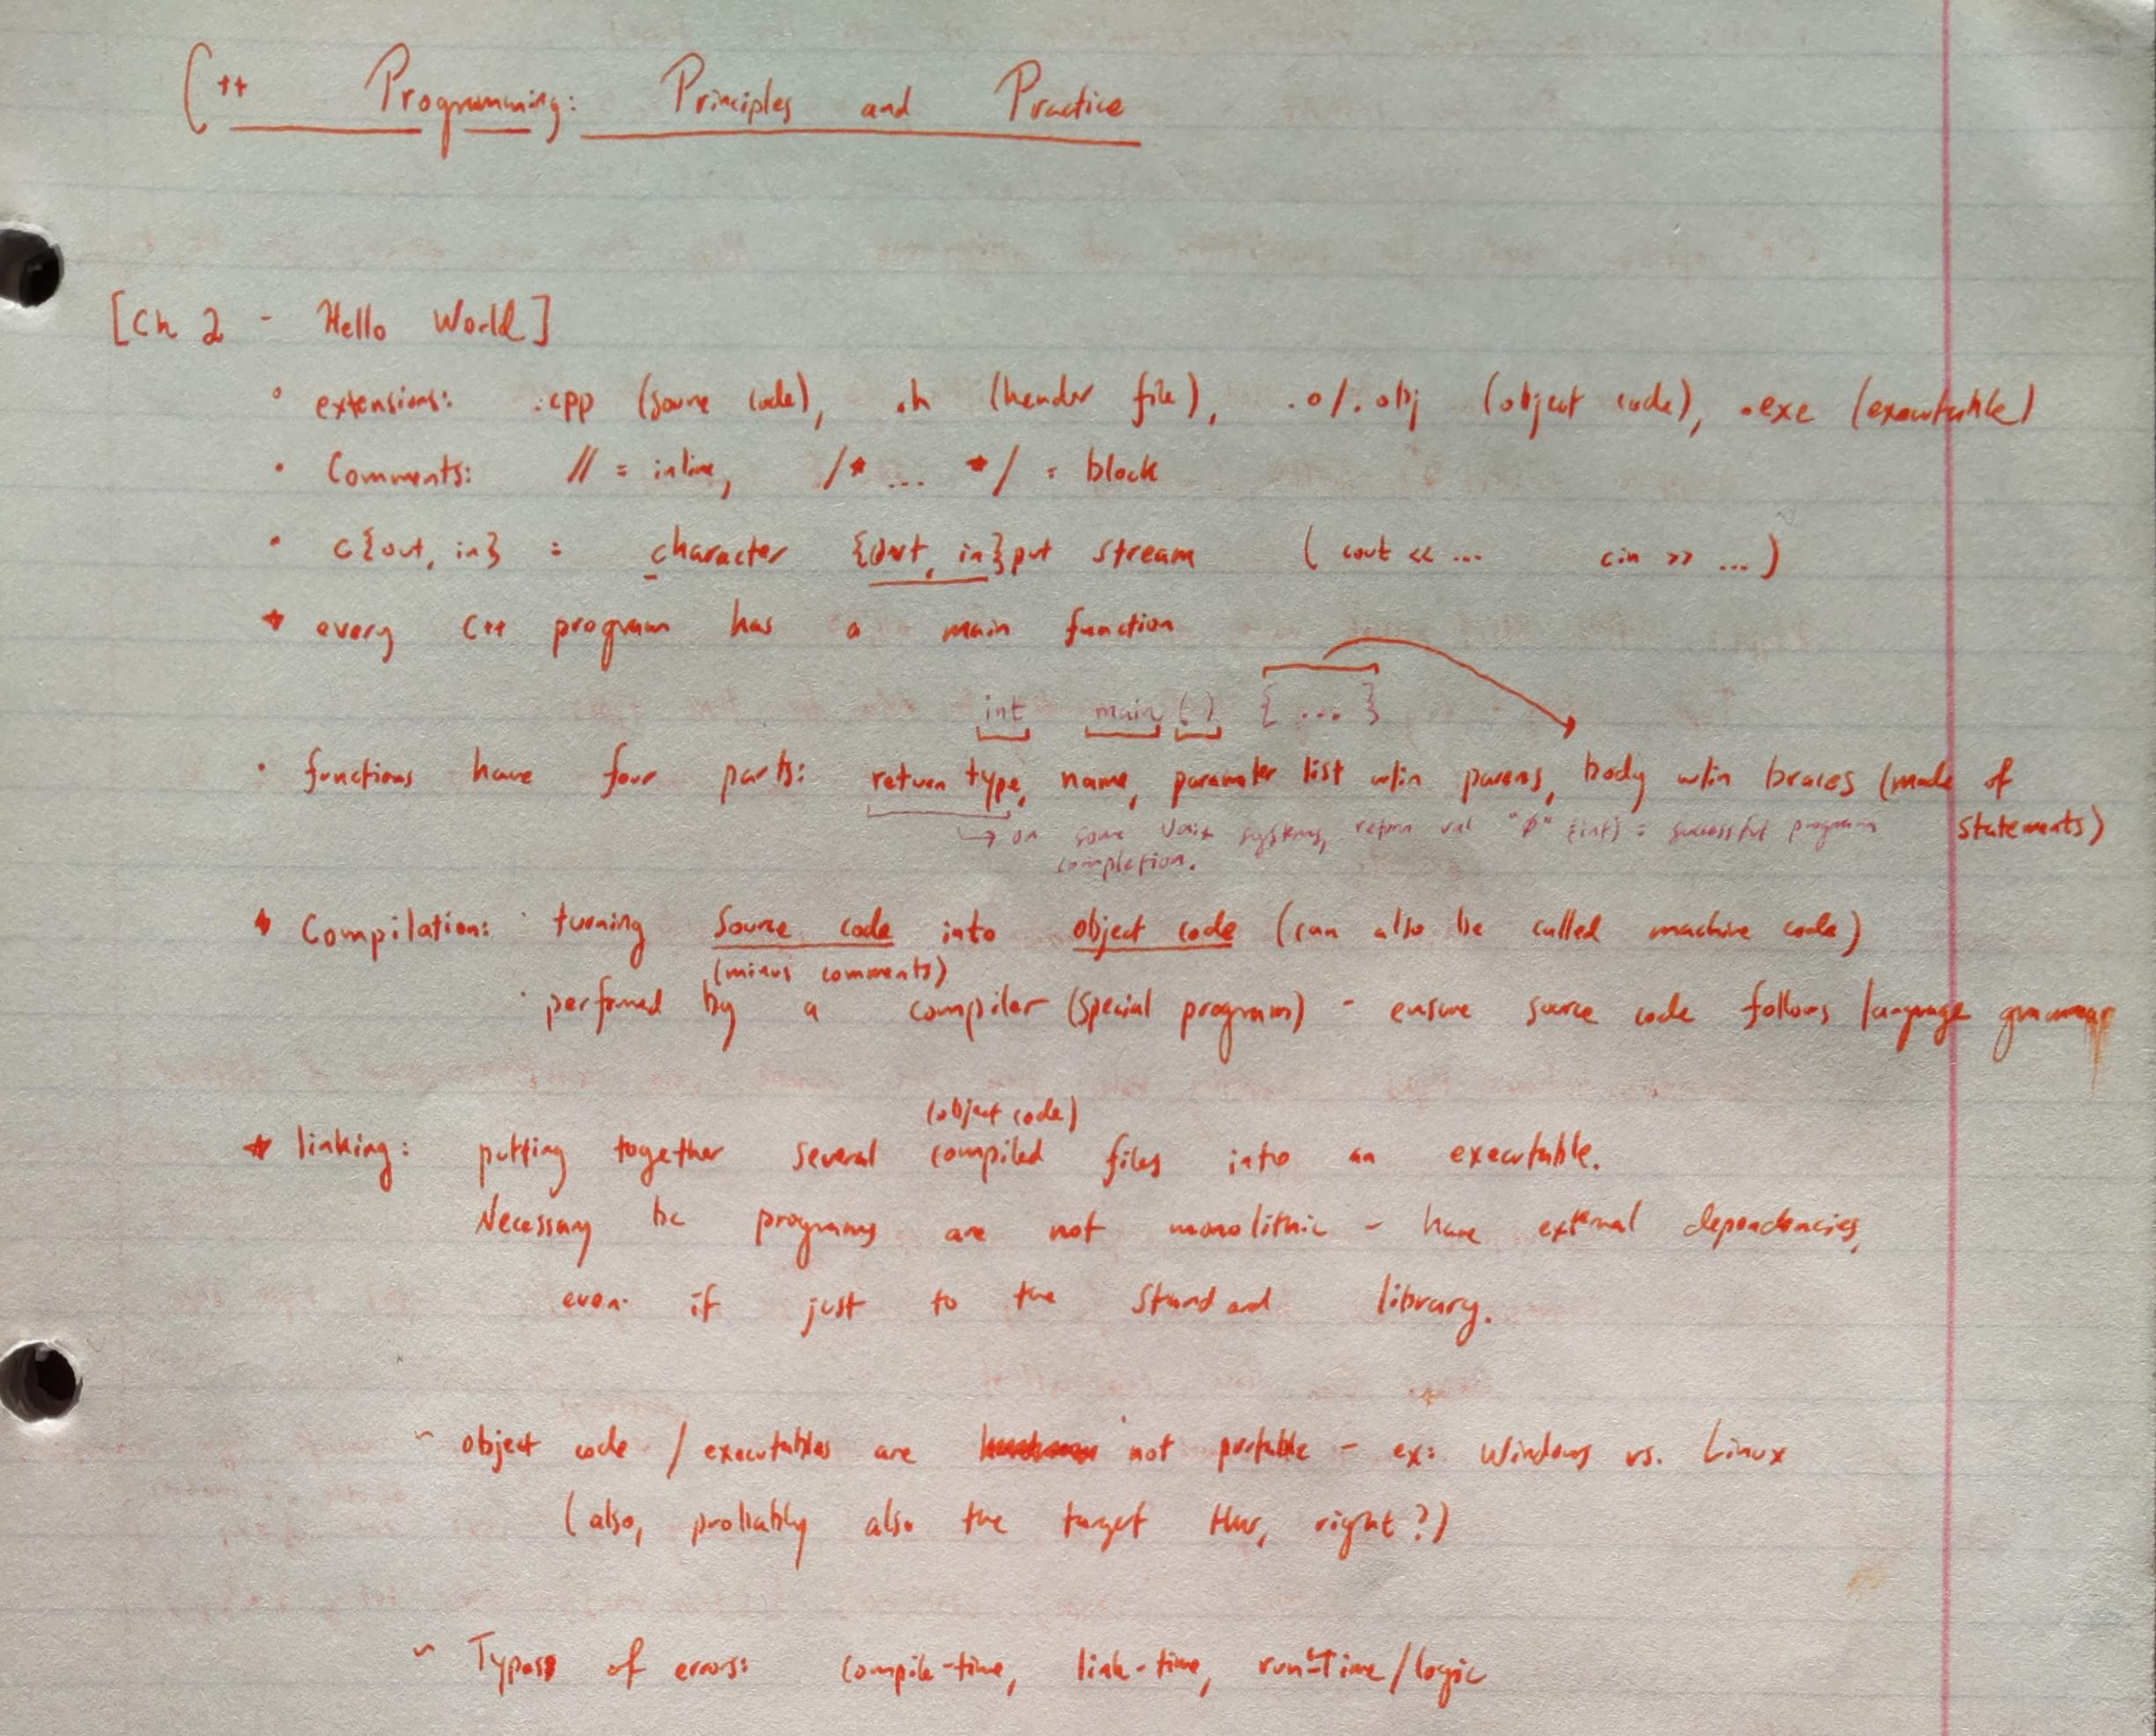 C++ Programming: Principles and Practice
[Ch 2 - Hello World]
• extensions: .cpp (source code), .h (header file), .o/.obj (object code), .exe (executable)
• Comments: // = inline, /* ... */ = block
• c{out, in} = character {out, in}put stream ( cout << ... cin >> ... )
* every C++ program has a main function
int main ( ) { ... }
• functions have four parts: return type, name, parameter list w/in parens, body w/in braces (made of
statements)
→ on some Unix systems, return val "0" (int) = successful program
completion.
* Compilation: · turning source code into object code (can also be called machine code)
(minus comments)
· performed by a compiler (special program) - ensure source code follows language grammar
(object code)
* linking: putting together several compiled files into an executable.
Necessary bc programs are not monolithic - have external dependencies,
even if just to the standard library.
~ object code / executables are not portable - ex: Windows vs. Linux
(also, probably also the target HW, right?)
~ Types of errors: compile-time, link-time, run-time/logic